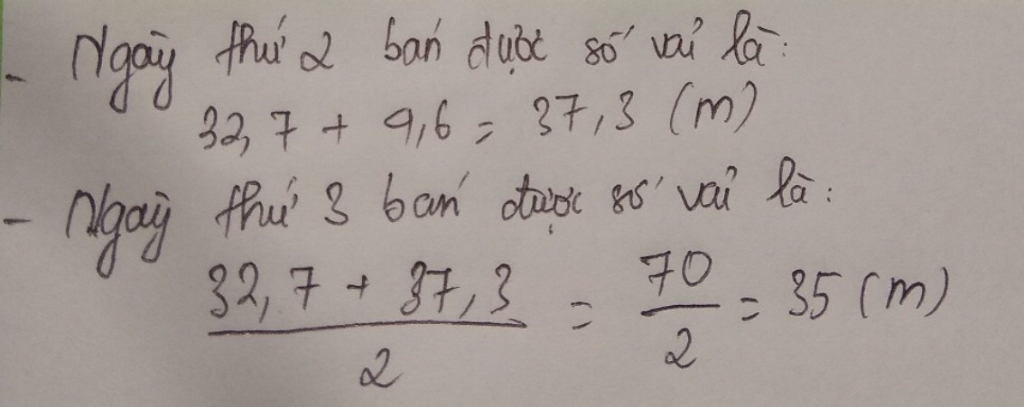 - Ngày thứ 2 bán được số vải là:
32,7 + 4,6 = 37,3 (m)
- Ngày thứ 3 bán được số vải là:
32,7 + 37,3 / 2 = 70 / 2 = 35 (m)